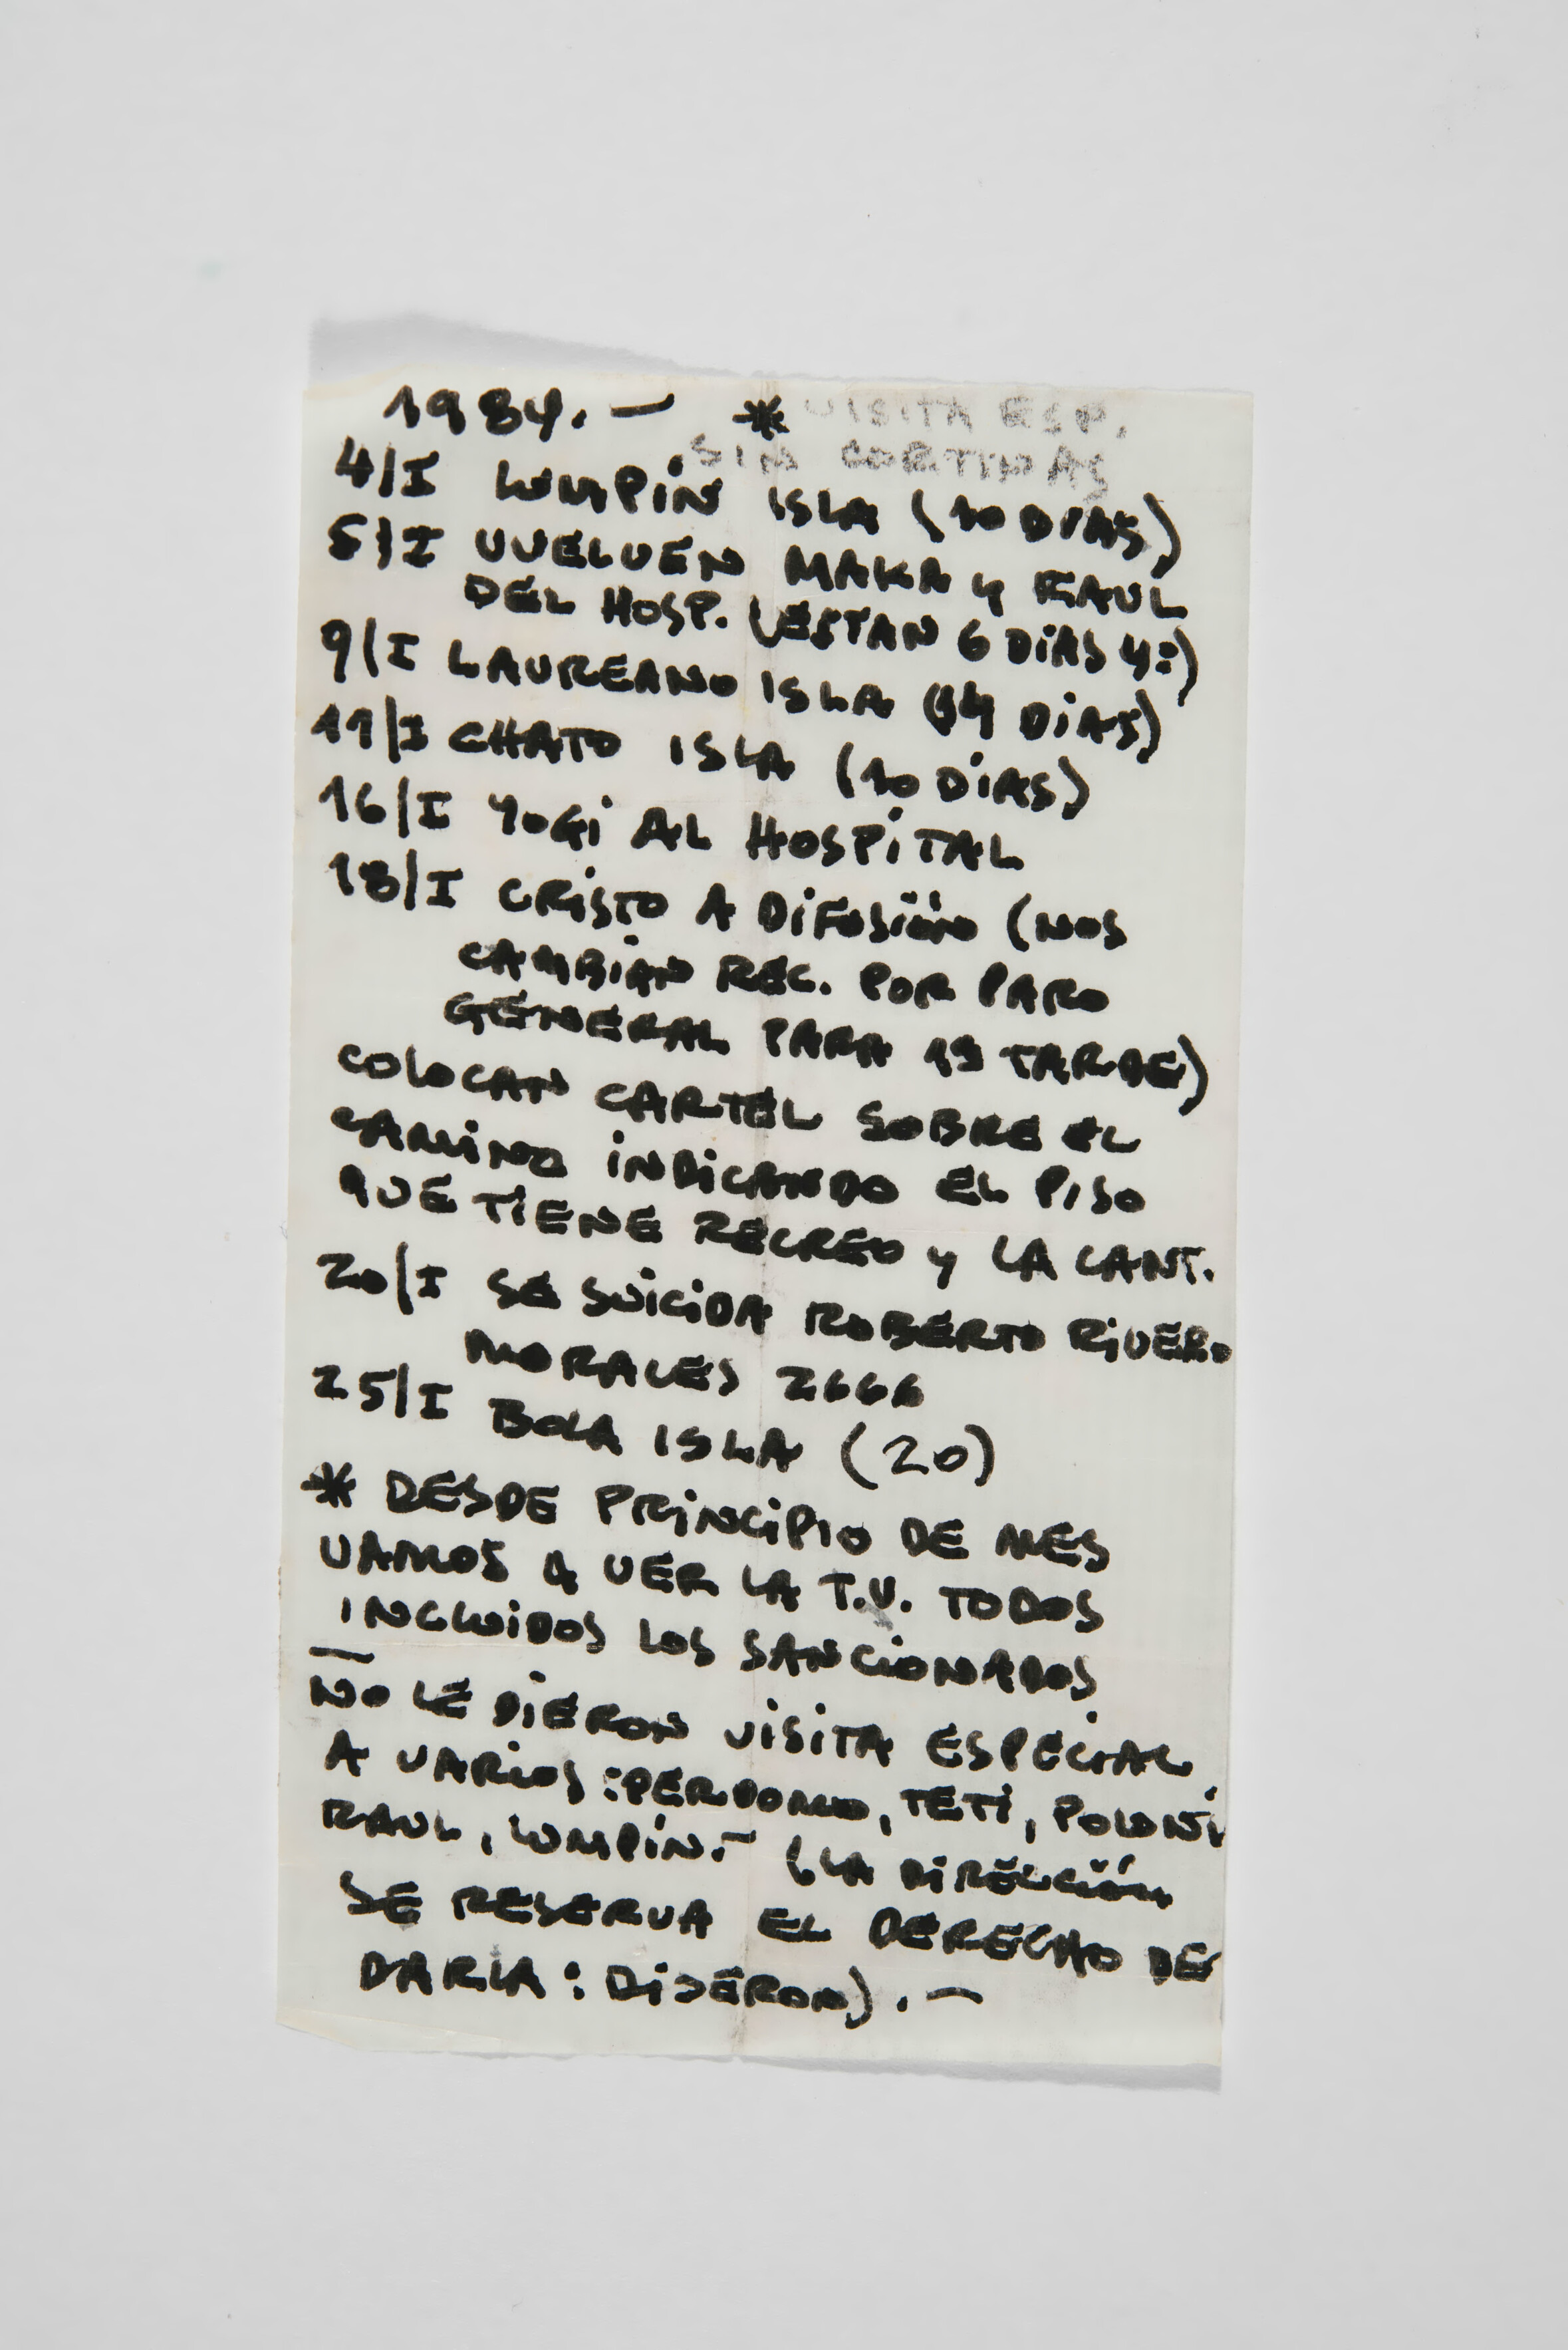 1984.- * VISITA ESP.
SIN CORTINAS
4/I LUMPÍN ISLA (10 DIAS)
5/I VUELVEN MAKA Y RAUL
DEL HOSP. (ESTAN 6 DÍAS Y:)
9/I LAUREANO ISLA (14 DÍAS)
11/I CHATO ISLA (10 DÍAS)
16/I YOGI AL HOSPITAL
18/I CRISTO A DIFUSIÓN (NOS
CAMBIAN REC. POR PARO
GENERAL PARA 19 TARDE)
COLOCAN CARTEL SOBRE EL
CAMINO INDICANDO EL PISO
QUE TIENE RECREO Y LA CANT.
20/I SE SUICIDA ROBERTO RIVERO
MORALES 2666
25/I BOLA ISLA (20)
* DESDE PRINCIPIO DE MES
VAMOS A VER LA T.V. TODOS
INCLUIDOS LOS SANCIONADOS
NO LE DIERON VISITA ESPECIAL
A VARIOS: PERDOMO, TETI,
RAUL, LUMPÍN.- (LA DIRECCIÓN
SE RESERVA EL DERECHO DE
DARLA: DIJERON).-